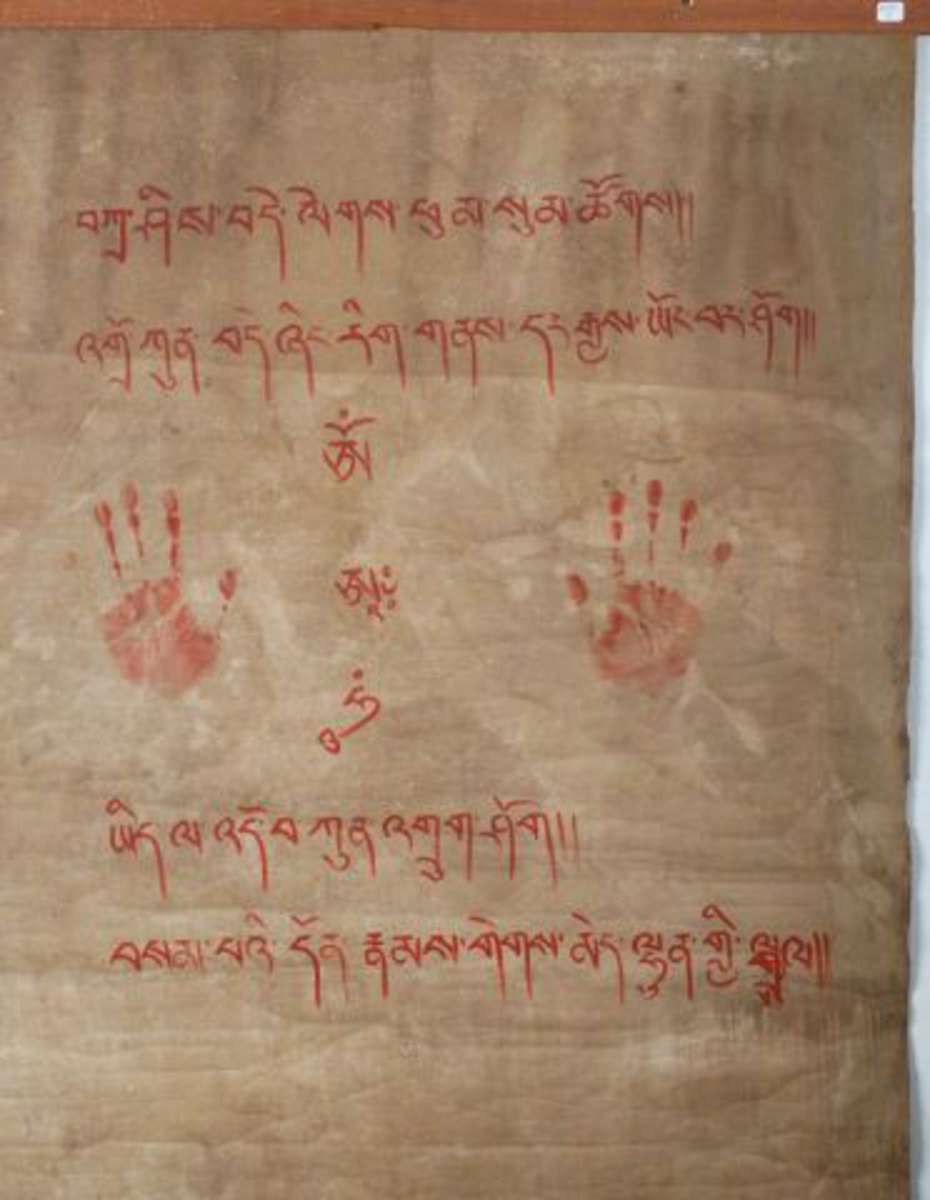 བཀྲ་ཤིས་བདེ་ལེགས་ཕུ་མ་སུམ་ཚོགས།།
འགྲོ་ཀུན་བདེ་ཞིང་རིག་གནས་དར་རྒྱས་ཡོང་བར་ཤོག།།
ཨོཾ
ཨཱཿ
ཧཱུྃ
ཡིད་ལ་འདོབ་ཀུན་འགྲུག་ཤོག།།
བསམ་པའི་དོན་རྣམས་གེགས་མེད་ལྷུན་གྱི་